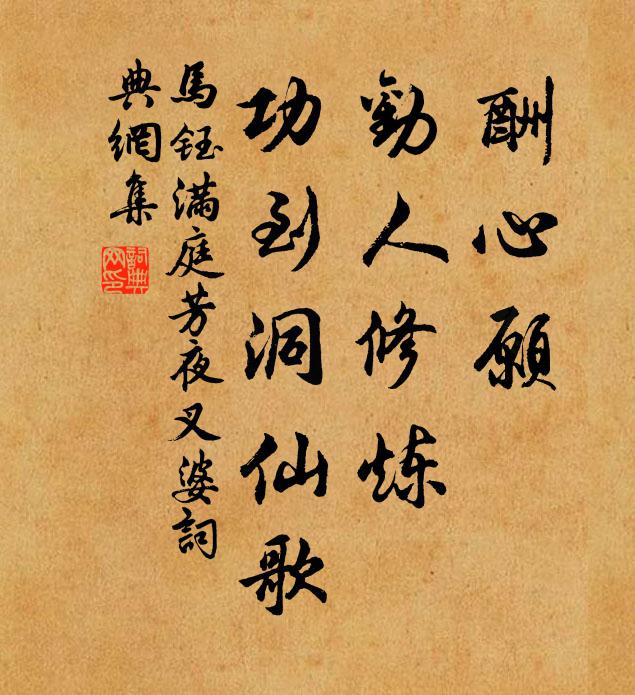 酬心願
勸人修炼
功到洞仙歌
馬鈺满庭芳夜叉婆詞
典網集
詞典
网印